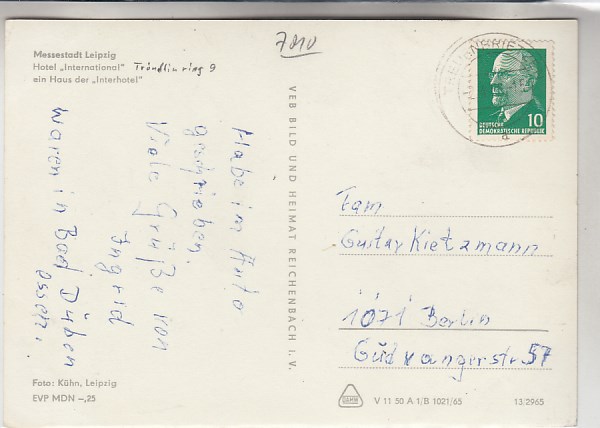 7010
Messestadt Leipzig
Hotel „International" Tröndlinring 9
ein Haus der „Interhotel"
Habe im Auto
geschrieben.
Viele Grüße von
Ingrid
waren in Bad Düben
essen.
VEB BILD UND HEIMAT REICHENBACH I. V.
10
DEUTSCHE
DEMOKRATISCHE REPUBLIK
Fam
Gustav Kietzmann
1071 Berlin
Gudvangerstr. 57
Foto: Kühn, Leipzig
EVP MDN –,25
V 11 50 A 1/B 1021/65
13.2965